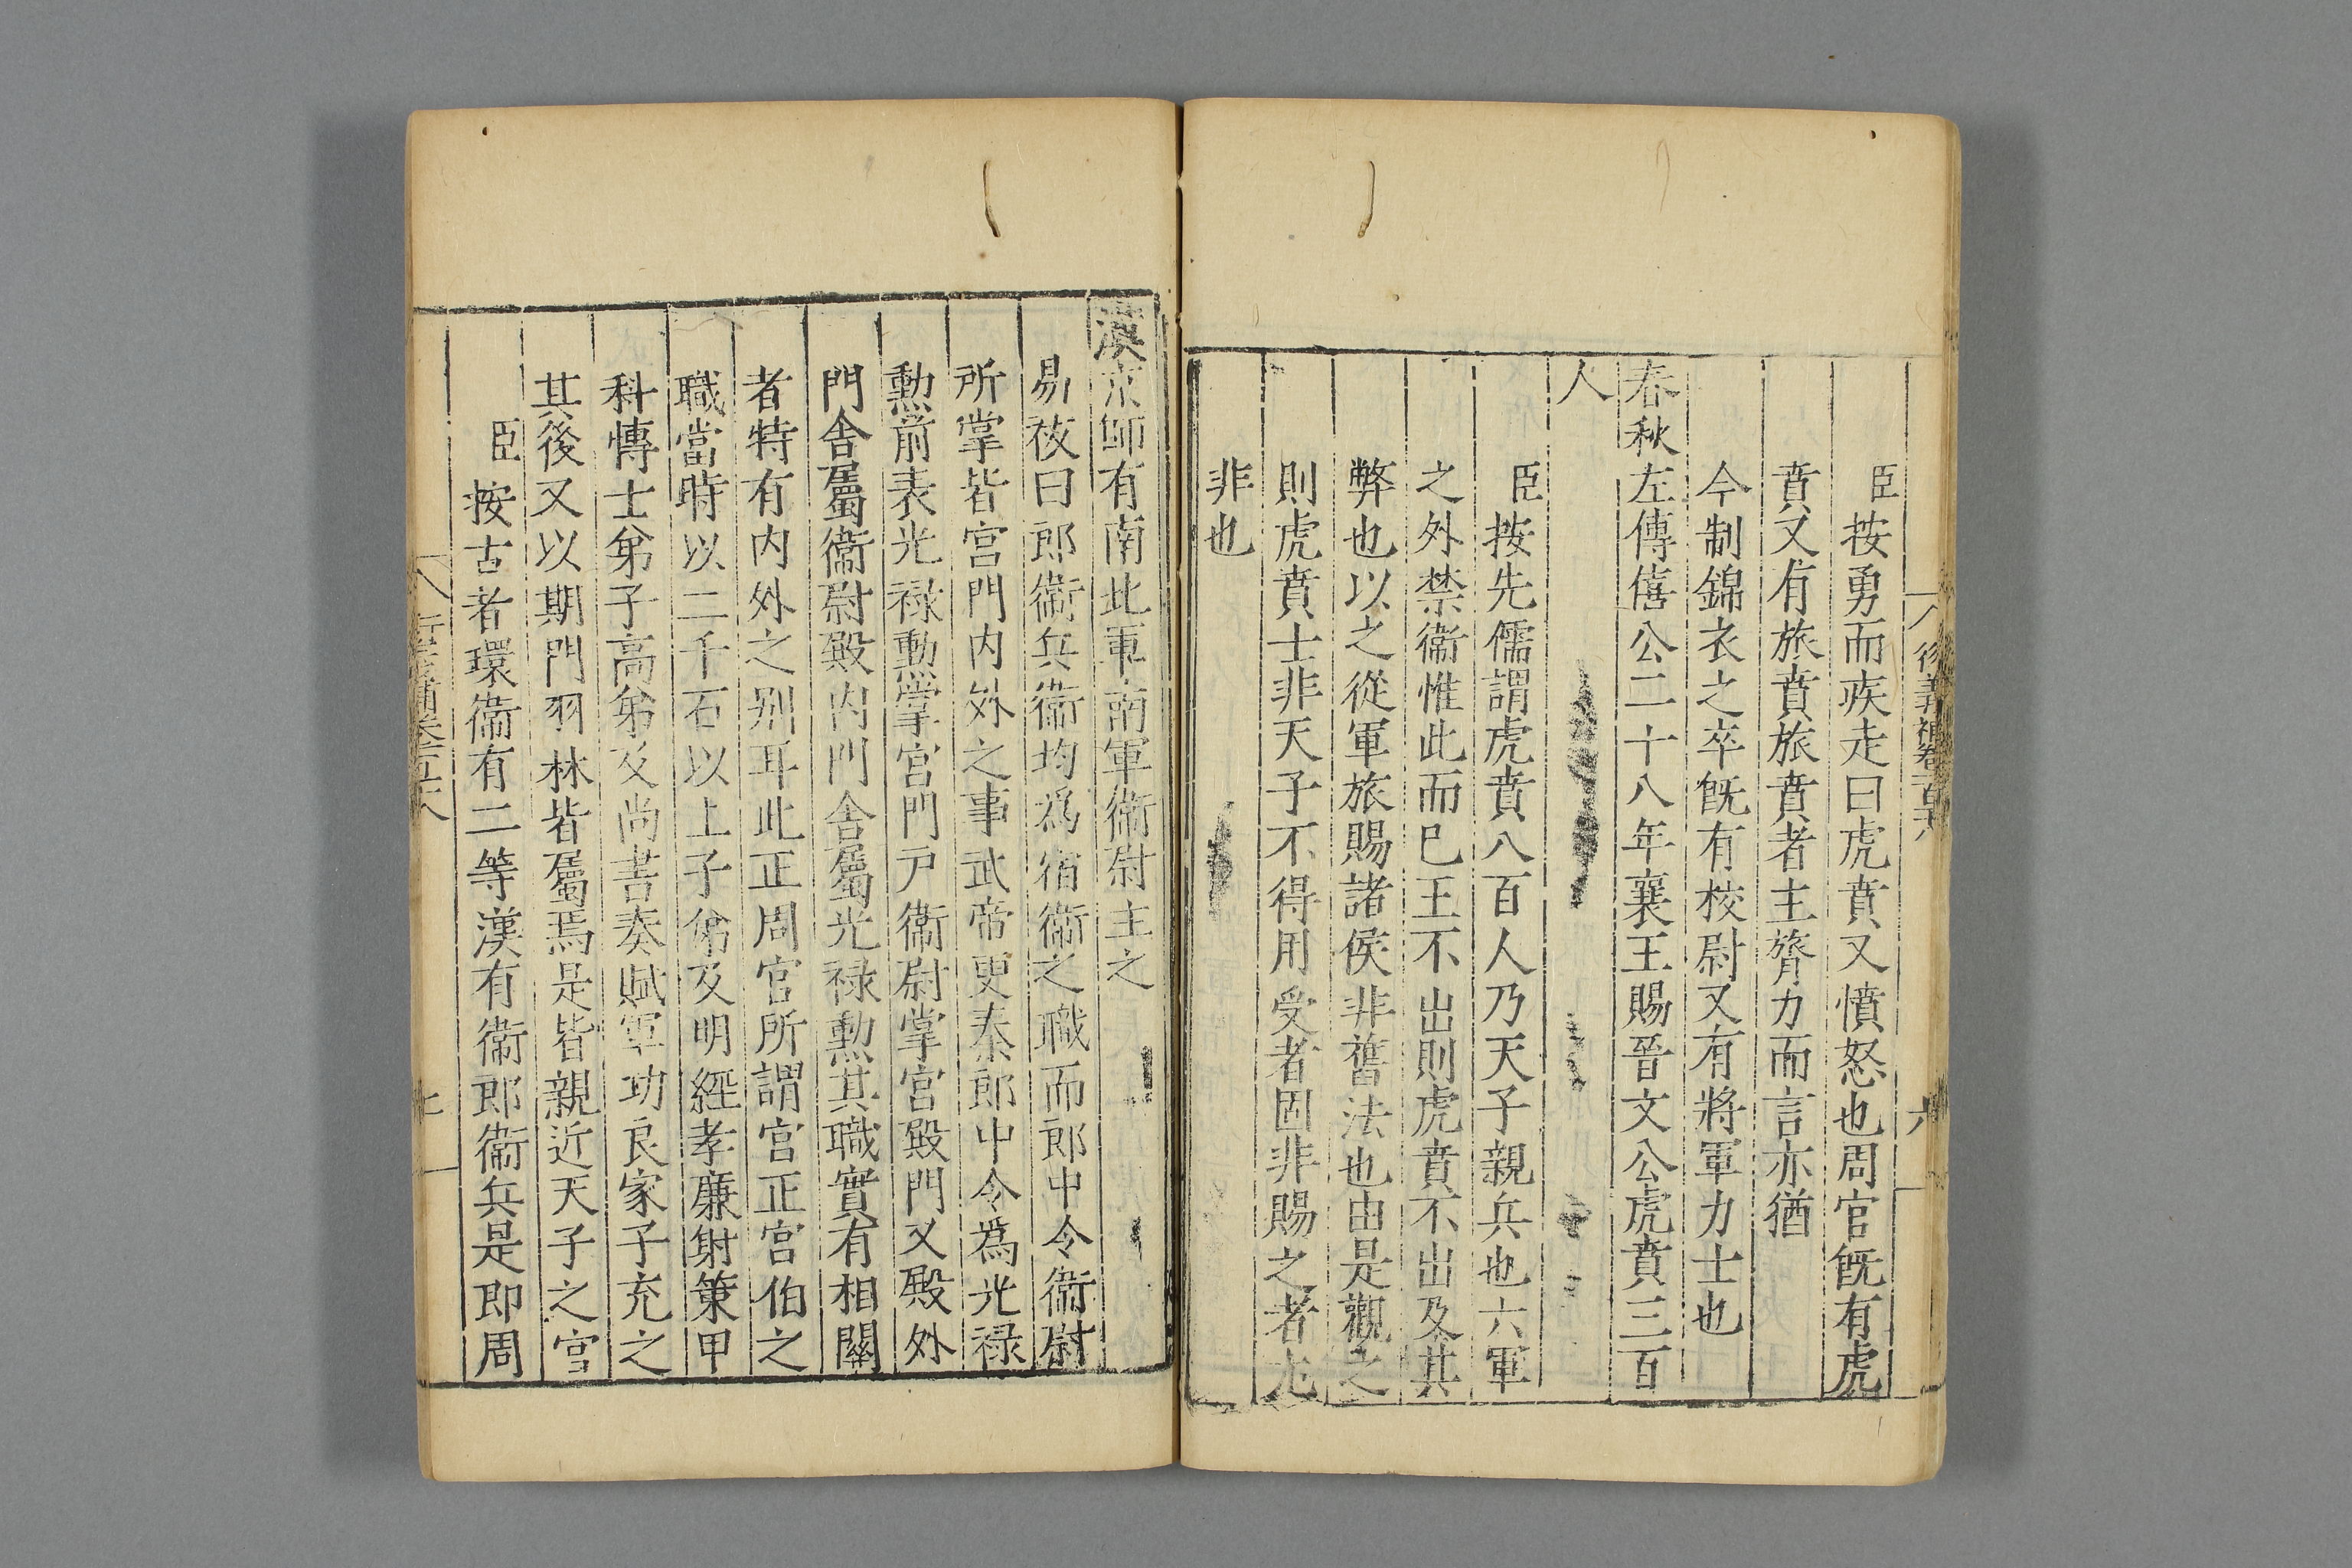 臣按勇而疾走曰虎賁又憤怒也周官旣有虎
賁又有旅賁旅賁者主膂力而言亦猶
今制錦衣之卒旣有校尉又有將軍力士也
春秋左傳僖公二十八年襄王賜晉文公虎賁三百
人
臣按先儒謂虎賁八百人乃天子親兵也六軍
之外禁衞惟此而已王不出則虎賁不出及其
弊也以之從軍旅賜諸侯非舊法也由是觀之
則虎賁士非天子不得用受者固非賜之者尤
非也
漢京師有南北軍南軍衞尉主之
易祓曰郎衞兵衞均爲宿衞之職而郎中令衞尉
所掌皆宫門内外之事武帝更秦郎中令爲光禄
勲前表光禄勲掌宫門戸衞尉掌宫殿門又殿外
門舍屬衞尉殿内門舍屬光禄勲其職實有相關
者特有内外之别耳此正周官所謂宫正宫伯之
職當時以二千石以上子弟及明經孝廉射策甲
科博士弟子高弟及尚書奏賦軍功良家子充之
其後又以期門羽林皆屬焉是皆親近天子之官
臣按古者環衞有二等漢有衞郎衞兵是即周